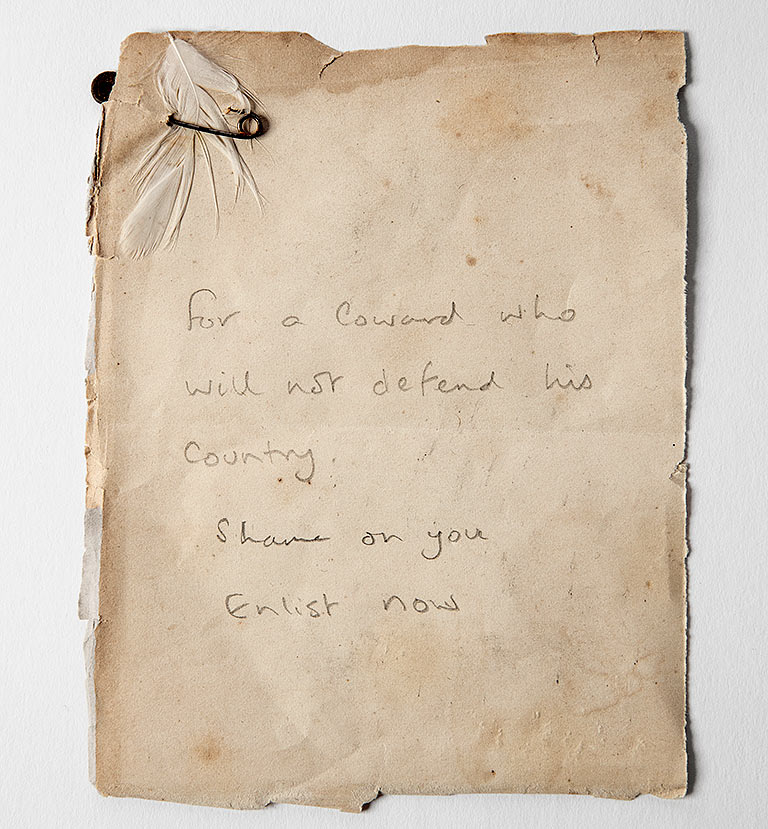 For a Coward who
will not defend his
Country.
Shame on you
Enlist now